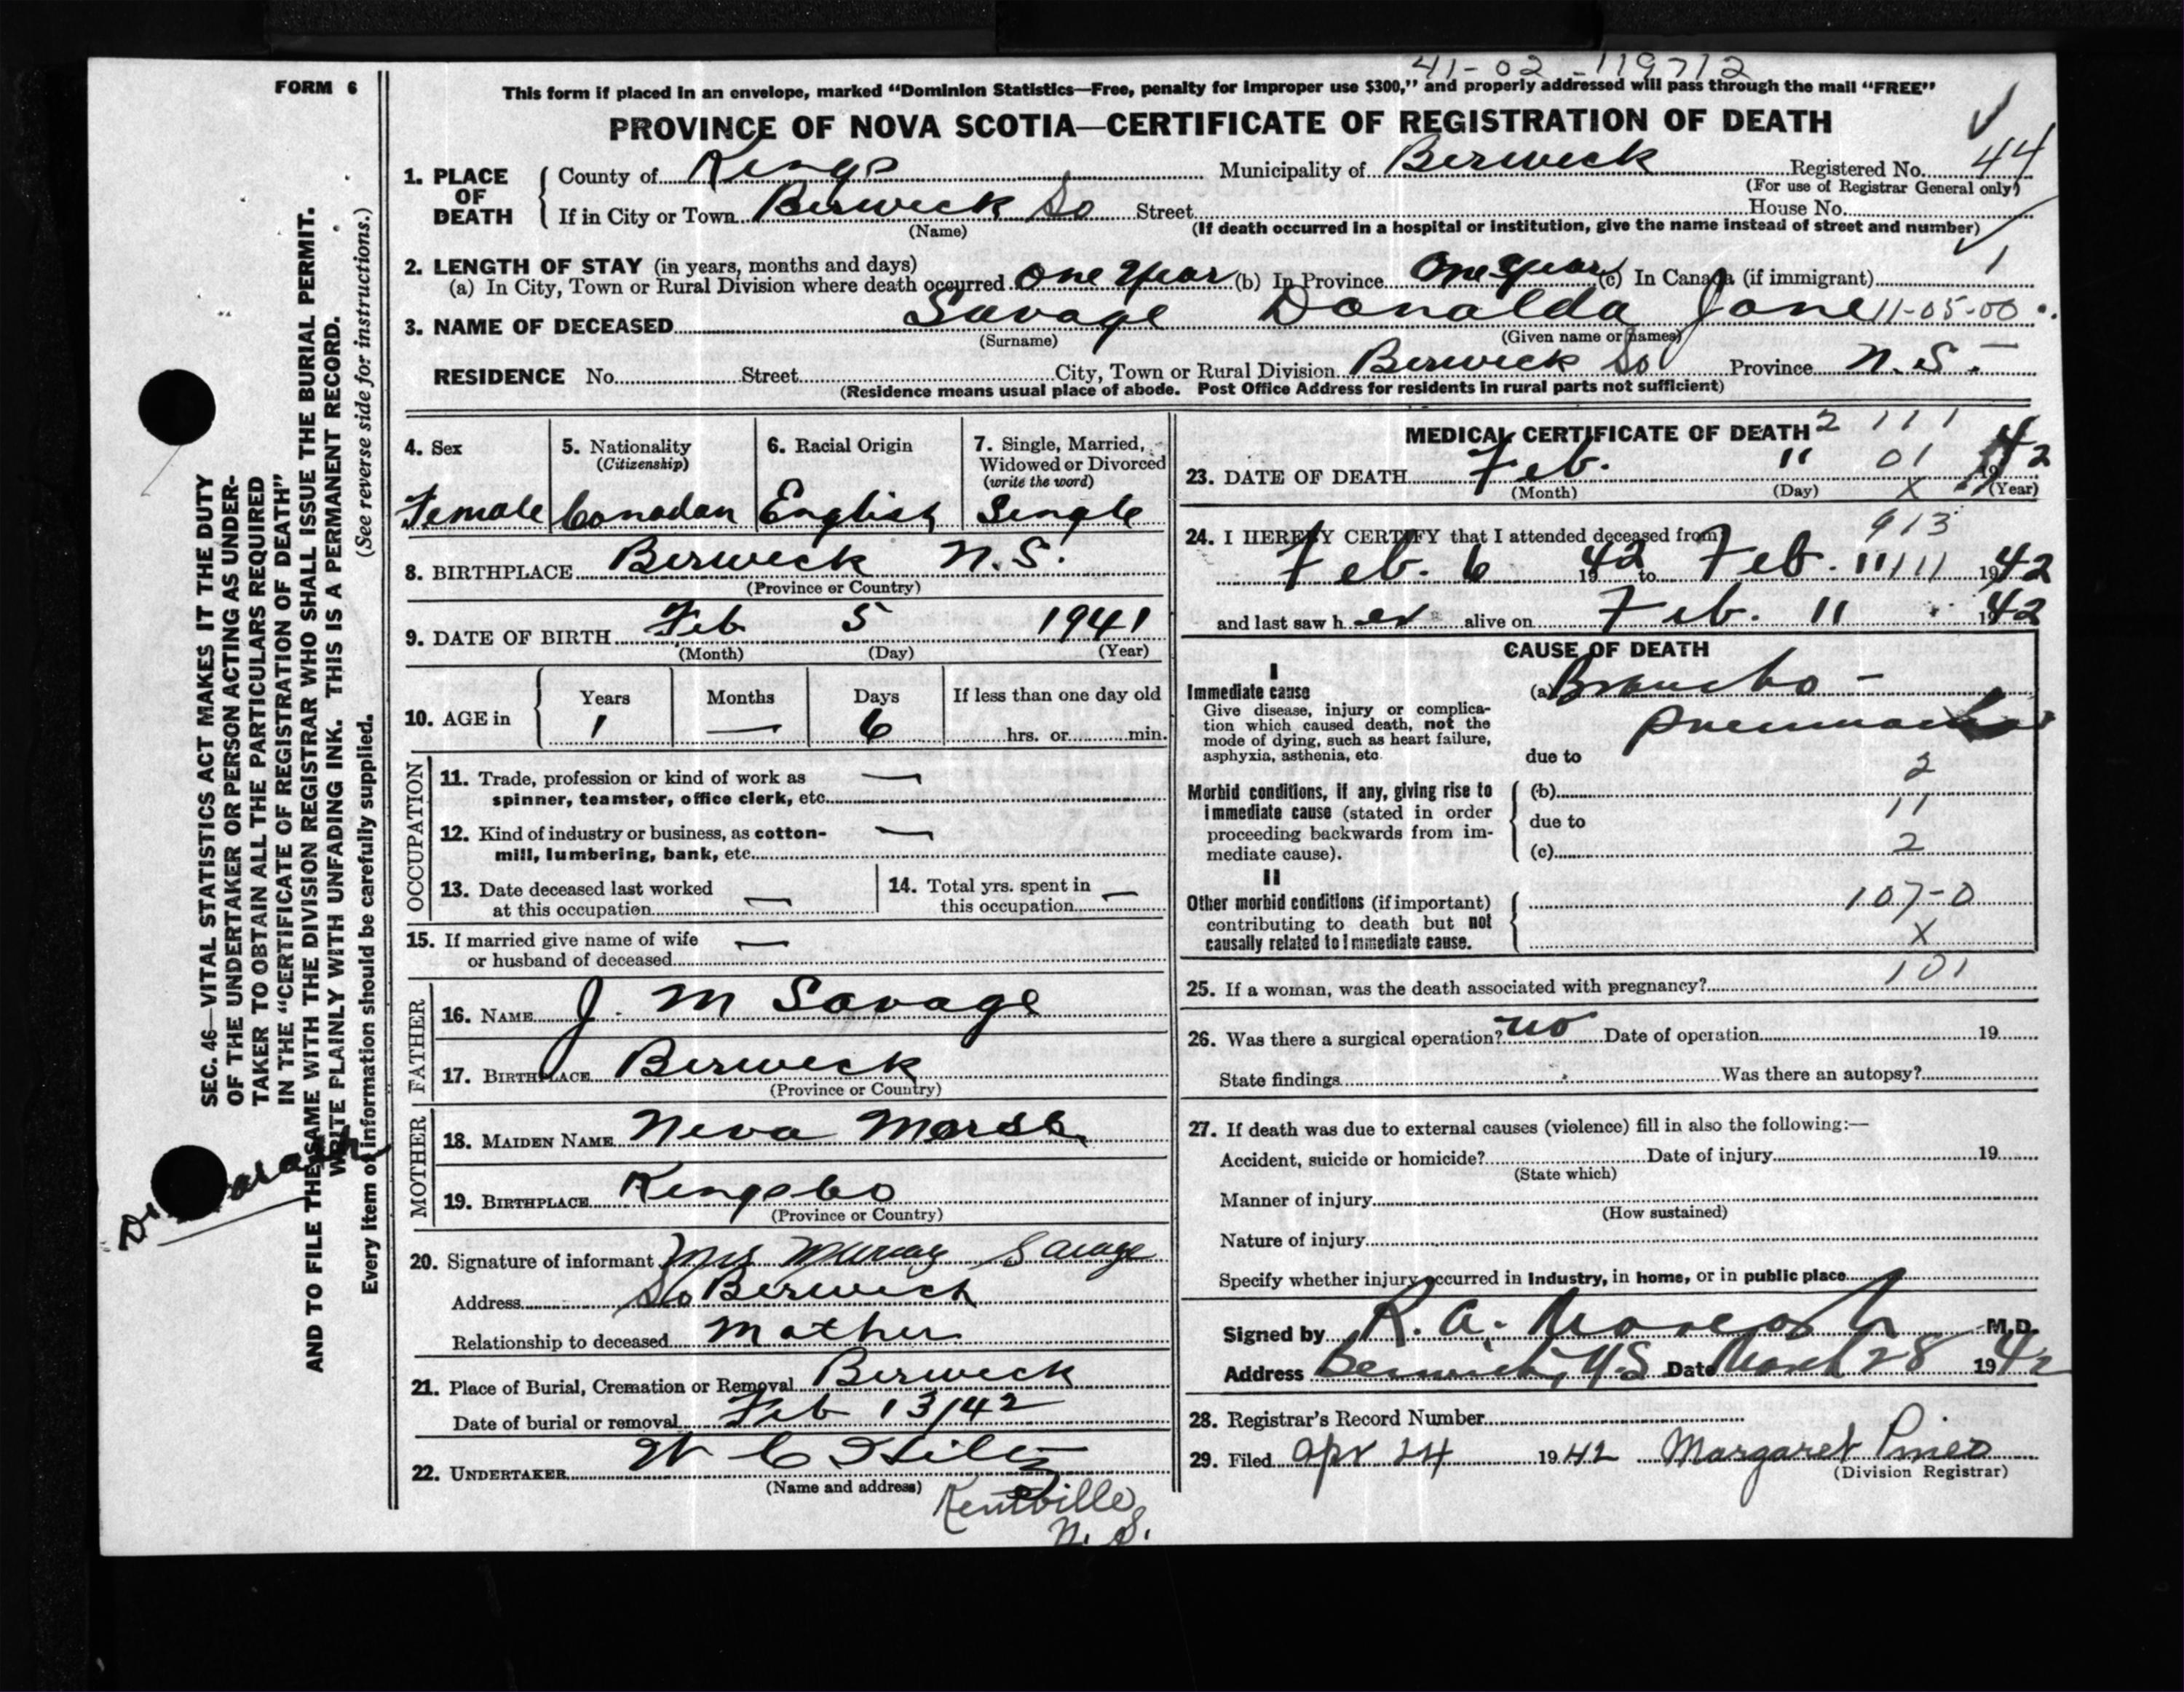 41-02-119712
FORM 6
This form if placed in an envelope, marked "Dominion Statistics—Free, penalty for improper use $300," and properly addressed will pass through the mail "FREE"
PROVINCE OF NOVA SCOTIA—CERTIFICATE OF REGISTRATION OF DEATH
1. PLACE OF DEATH County of Kings Municipality of Berwick Registered No. 44
(For use of Registrar General only)
If in City or Town Berwick So Street House No.
(Name) (If death occurred in a hospital or institution, give the name instead of street and number)
2. LENGTH OF STAY (in years, months and days) 1
(a) In City, Town or Rural Division where death occurred One Year (b) In Province One Year (c) In Canada (if immigrant)
3. NAME OF DECEASED Savage Donalda Jane 11-05-00
(Surname) (Given name or names)
RESIDENCE No. Street City, Town or Rural Division Berwick So Province N.S.
(Residence means usual place of abode. Post Office Address for residents in rural parts not sufficient)
4. Sex Female
5. Nationality (Citizenship) Canadan
6. Racial Origin English
7. Single, Married, Widowed or Divorced (write the word) Single
8. BIRTHPLACE Berwick N.S.
(Province or Country)
9. DATE OF BIRTH Feb 5 1941
(Month) (Day) (Year)
10. AGE in Years 1 Months — Days 6 If less than one day old hrs. or min.
OCCUPATION
11. Trade, profession or kind of work as —
spinner, teamster, office clerk, etc.
12. Kind of industry or business, as cotton- —
mill, lumbering, bank, etc.
13. Date deceased last worked at this occupation —
14. Total yrs. spent in this occupation —
15. If married give name of wife —
or husband of deceased
FATHER
16. NAME J. M Savage
17. BIRTHPLACE Berwick
(Province or Country)
MOTHER
18. MAIDEN NAME Neva
19. BIRTHPLACE Kings Co
(Province or Country)
20. Signature of informant Mrs Murray Savage
Address So Berwick
Relationship to deceased Mother
21. Place of Burial, Cremation or Removal Berwick
Date of burial or removal Feb 13/42
22. UNDERTAKER W C Hiltz
(Name and address) Kentville,
N. S.
MEDICAL CERTIFICATE OF DEATH 2 111
23. DATE OF DEATH Feb. 11 01 1942
(Month) (Day) X (Year)
24. I HEREBY CERTIFY that I attended deceased from 913
Feb. 6 1942 to Feb. 11 11 1942
and last saw her alive on Feb. 11 1942
CAUSE OF DEATH
I
Immediate cause (a) Broncho-
Give disease, injury or complica-
tion which caused death, not the pneumonia
mode of dying, such as heart failure,
asphyxia, asthenia, etc. due to
2
Morbid conditions, if any, giving rise to (b)
immediate cause (stated in order 11
proceeding backwards from im- due to
mediate cause). (c) 2
II
Other morbid conditions (if important) 107-0
contributing to death but not
causally related to immediate cause. X
101
25. If a woman, was the death associated with pregnancy?
26. Was there a surgical operation? no Date of operation 19
State findings Was there an autopsy?
27. If death was due to external causes (violence) fill in also the following:—
Accident, suicide or homicide? Date of injury 19
(State which)
Manner of injury
(How sustained)
Nature of injury
Specify whether injury occurred in Industry, in home, or in public place
Signed by R. A. M.D.
Address Berwick, N S Date March 28 1942
28. Registrar's Record Number
29. Filed Apr 24 1942 Margaret Pineo
(Division Registrar)
SEC. 46—VITAL STATISTICS ACT MAKES IT THE DUTY
OF THE UNDERTAKER OR PERSON ACTING AS UNDER-
TAKER TO OBTAIN ALL THE PARTICULARS REQUIRED
IN THE "CERTIFICATE OF REGISTRATION OF DEATH"
AND TO FILE THE SAME WITH THE DIVISION REGISTRAR WHO SHALL ISSUE THE BURIAL PERMIT.
WRITE PLAINLY WITH UNFADING INK. THIS IS A PERMANENT RECORD.
Every item of information should be carefully supplied. (See reverse side for instructions.)